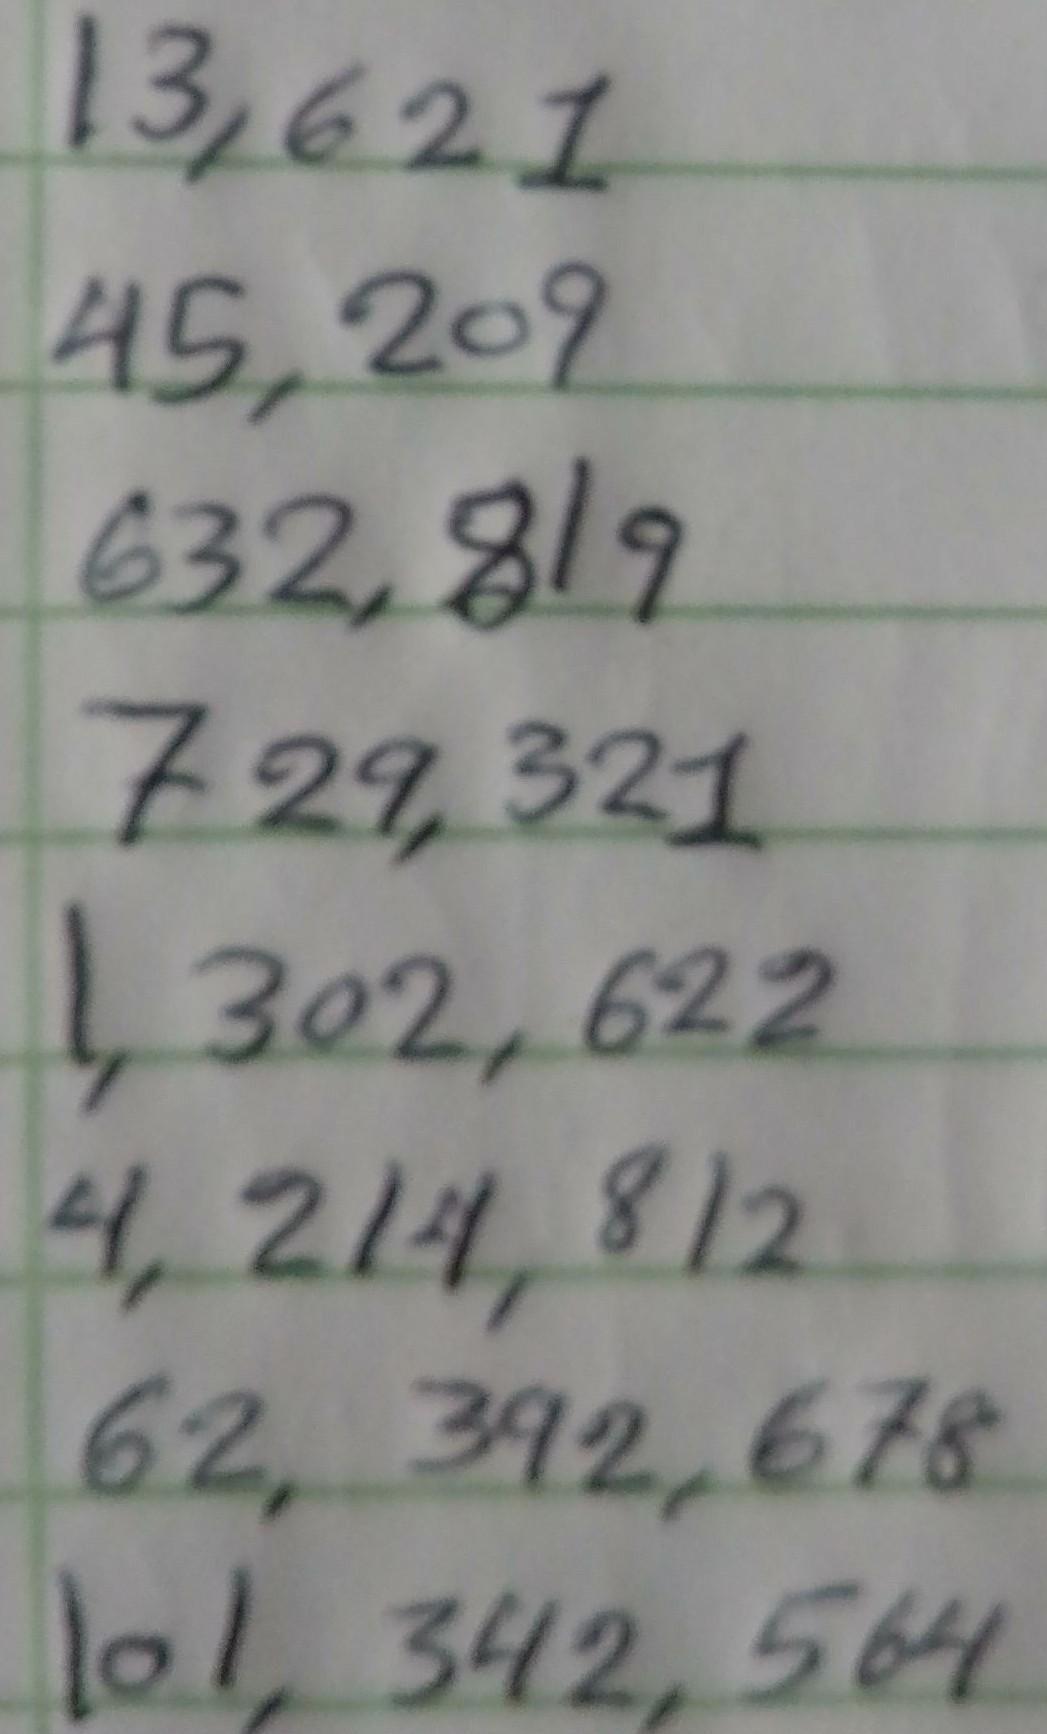 13,621
45,209
632,819
729,321
1,302,622
4,214,812
62,392,678
101,342,564